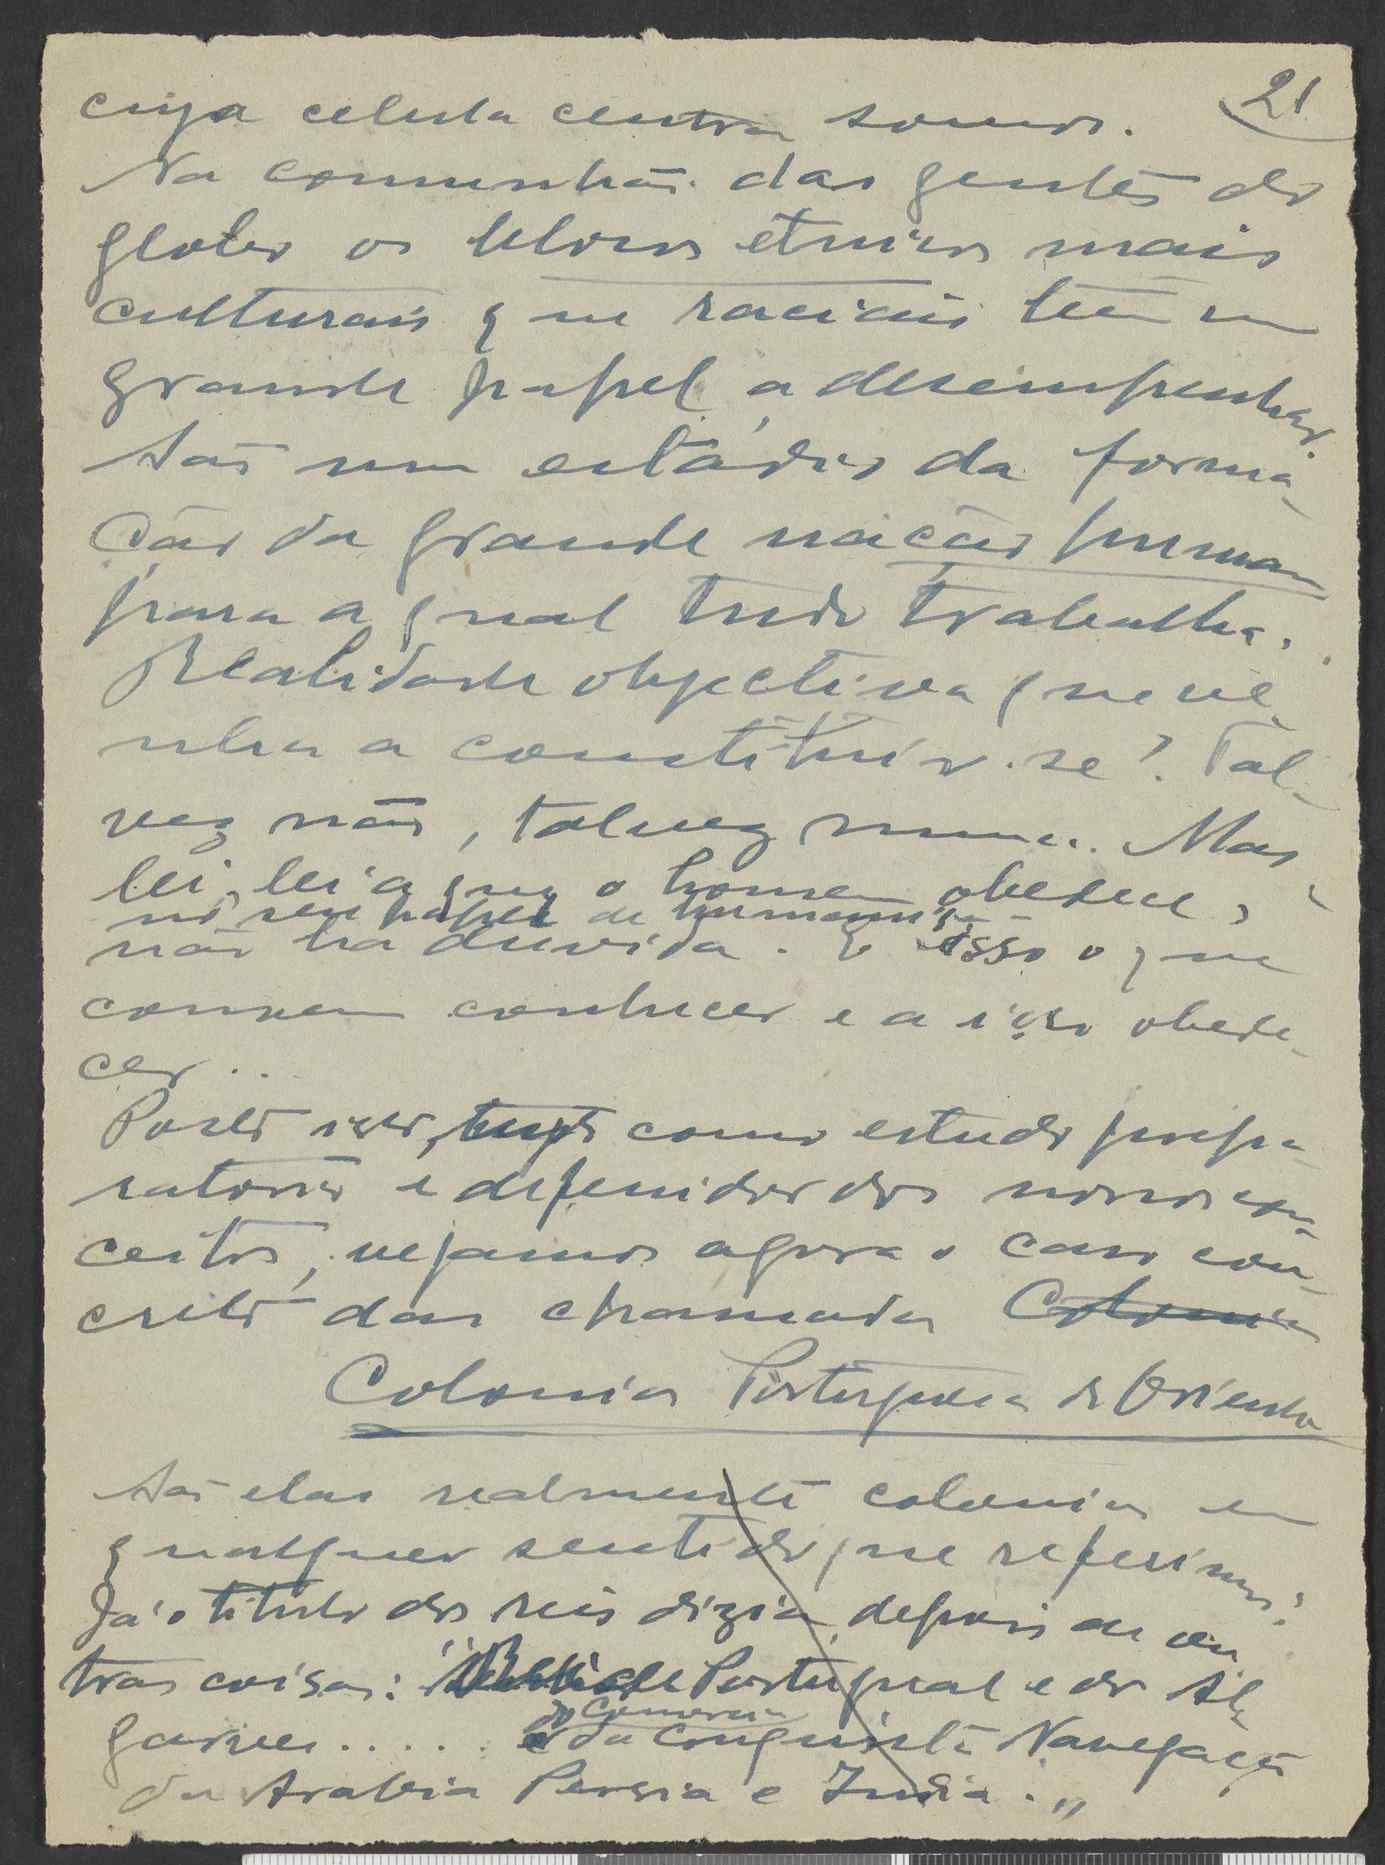 21
cuja celula central somos.
Na comunhão das gentes do
globo os blocos étnicos mais
culturais que raciais teem um
grande papel a desempenhar
São um estádio da forma-
ção da grande nação humana
para a qual tudo trabalha.
Realidade objectiva que ve-
nha a constituir-se? Tal-
vez não, talvez nunca. Mas
lei, lei a que o homem obedece,
no seu papel de humanisar-se
não ha duvida. E isso o que
convem conhecer e a isso obede-
cer...
Posto isto, como estudo prepa-
ratorio e defenidor dos novos con-
ceitos, vejamos agora o caso con-
creto das chamadas Colonias
Colonias Portuguesas do Oriente
São elas realmente colonias em
qualquer sentido que referimos?
Já o titulo dos reis dizia, depois de ou-
tras coisas: "Rei de Portugal e do Al-
garves..... do Comercio
e da Conquista Navegação
da Arabia Persia e India."